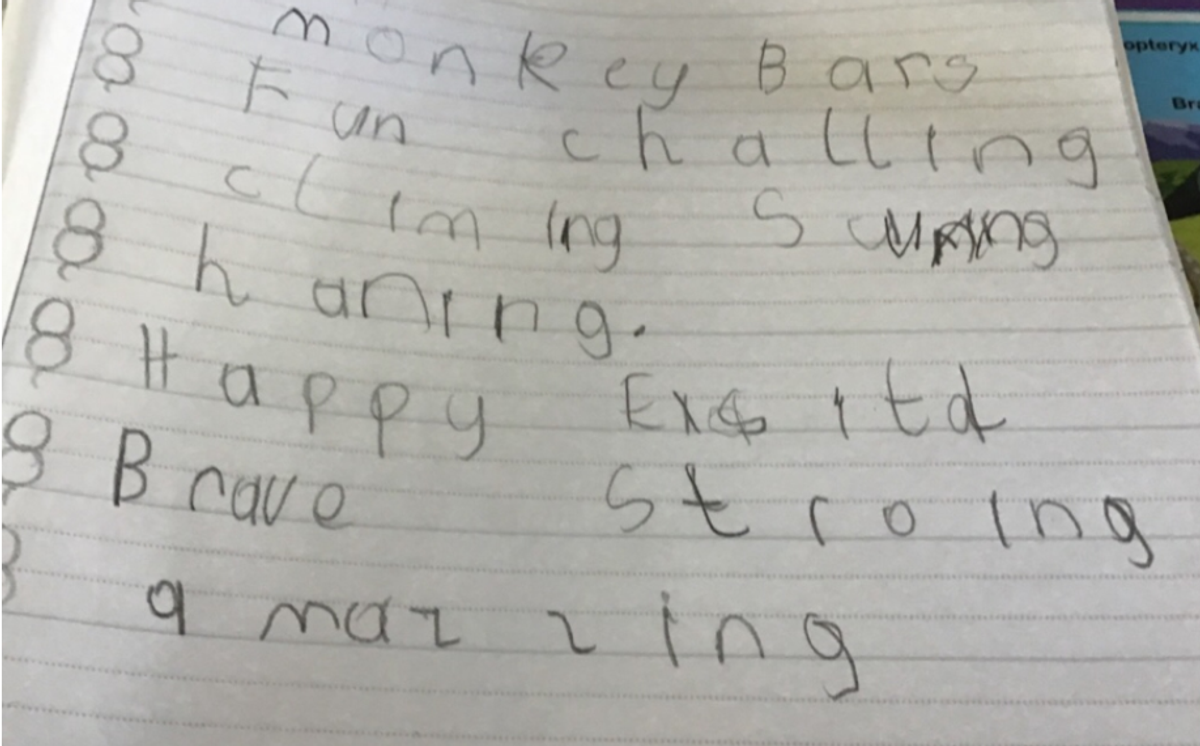 monkey Bars
Fun challing
climing
haning.
Happy Exsitd
Brave stroing
amazzing
opteryx